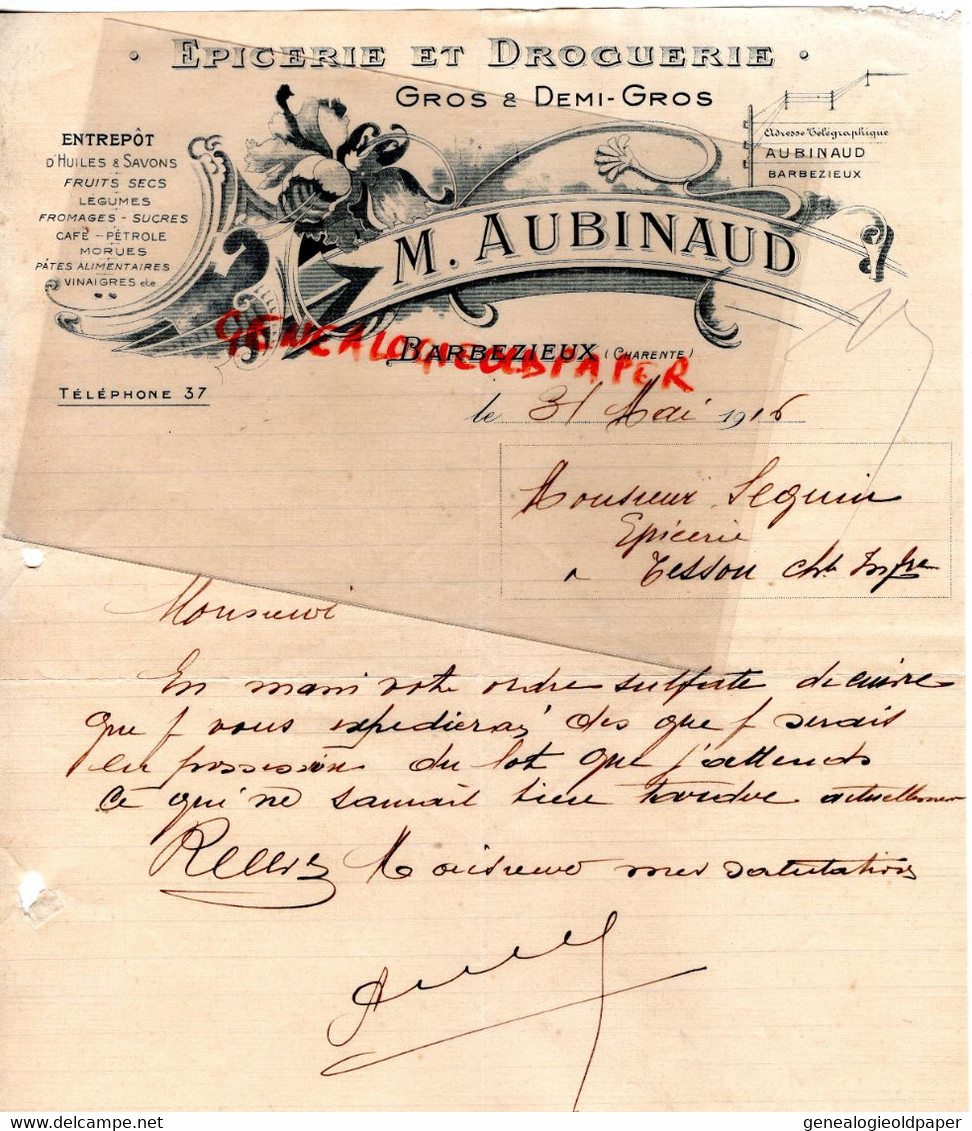 EPICERIE ET DROGUERIE
GROS & DEMI-GROS
ENTREPÔT
D'HUILES & SAVONS
FRUITS SECS
LEGUMES
FROMAGES - SUCRES
CAFÉ - PÉTROLE
MORUES
PÂTES ALIMENTAIRES
VINAIGRES etc
Adresse Télégraphique
AUBINAUD
BARBEZIEUX
M. AUBINAUD
BARBEZIEUX (CHARENTE)
GENEALOGIEOLDPAPER
TÉLÉPHONE 37
le 31 Mai 1916
Monsieur Seguin
Epicerie
a Tesson Chte Infre
Monsieur
En main votre ordre sulfate de cuivre
que je vous expedierai des que je serais
en possession du lot que j'attends
Ce qui ne saurait bien tarder actuellement
Recevez Monsieur mes salutations
genealogieoldpaper